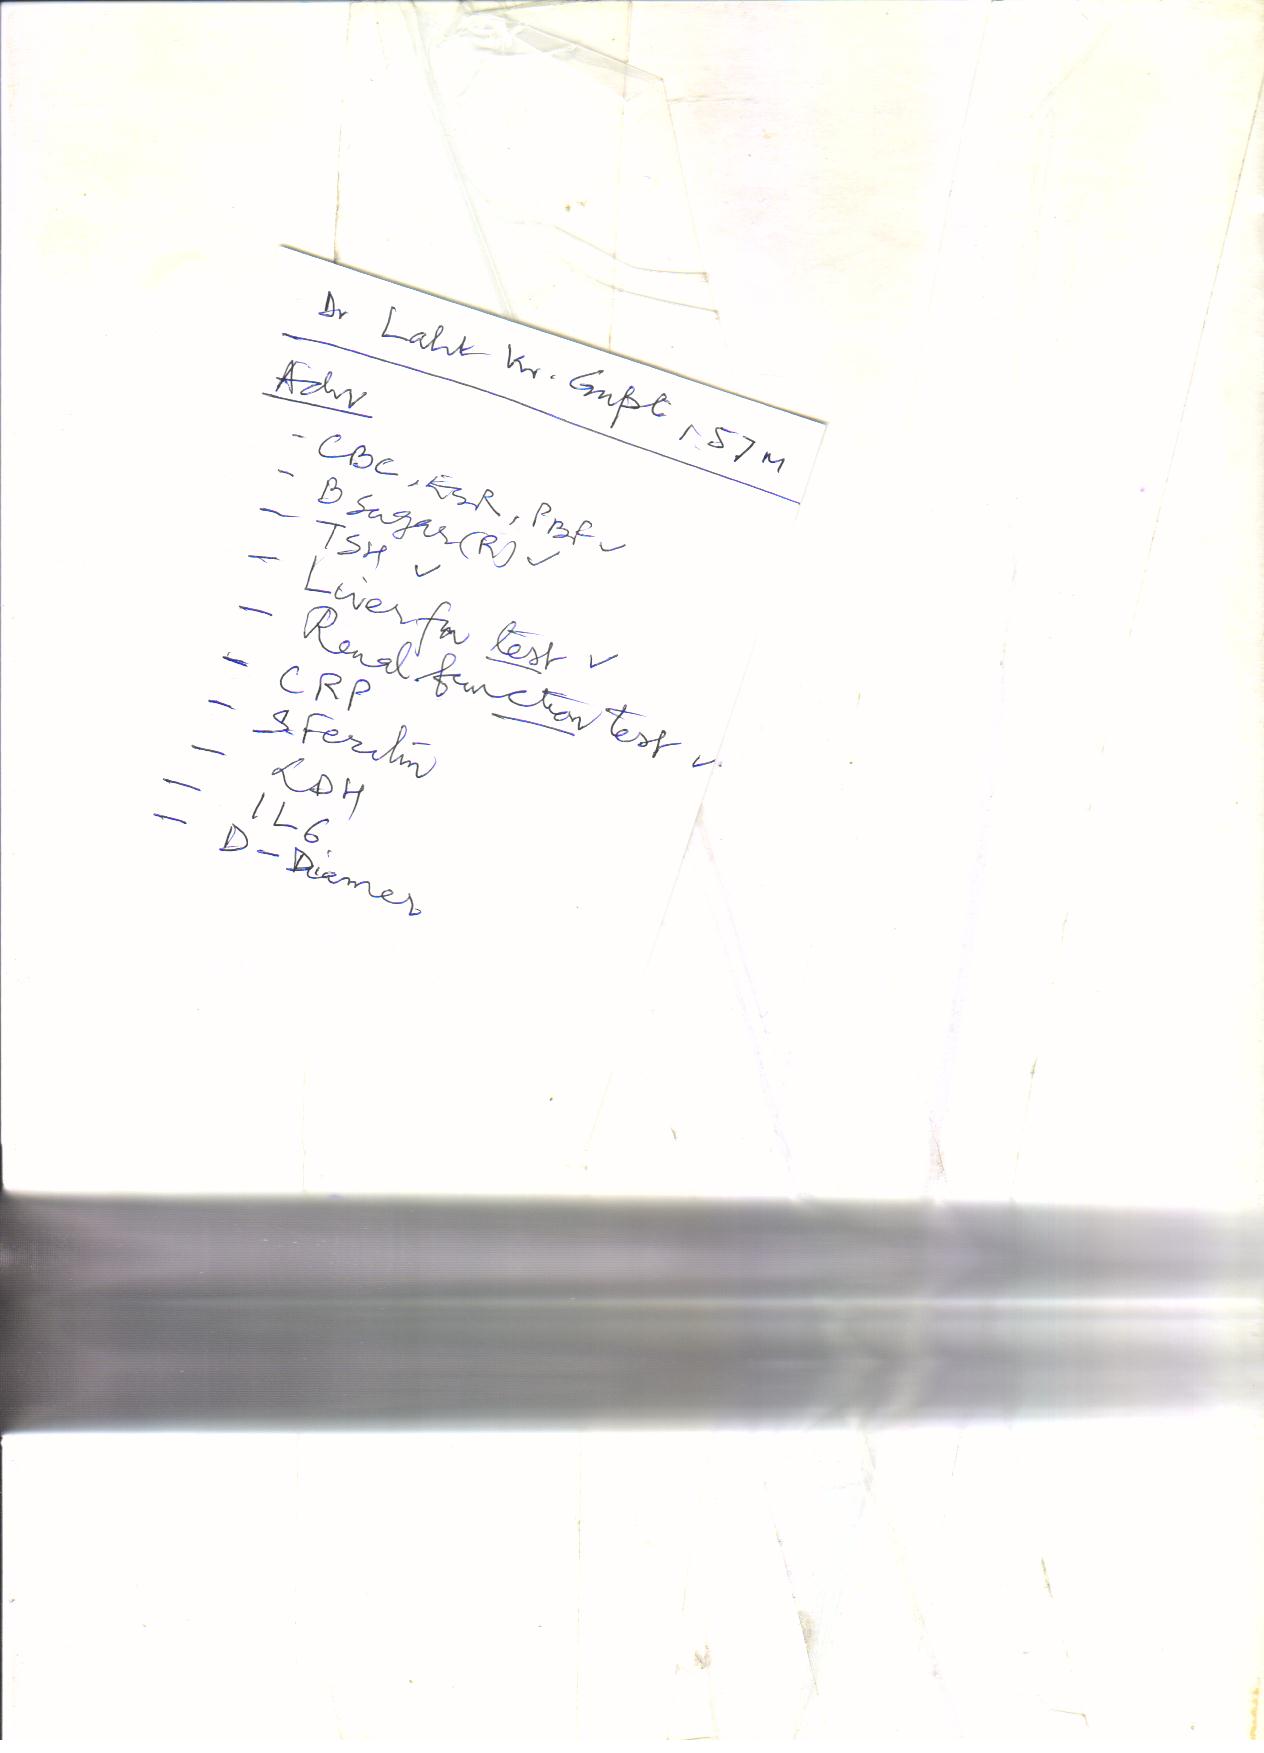 Dr Lalit Kr. Gupt, 57 M
Adv
- CBC, ESR, PBF ✓
- B Sugar (R) ✓
- TSH ✓
- Liver fn test ✓
- Renal function test ✓
- CRP
- S Feritin
- LDH
- IL6
- D-Diamer